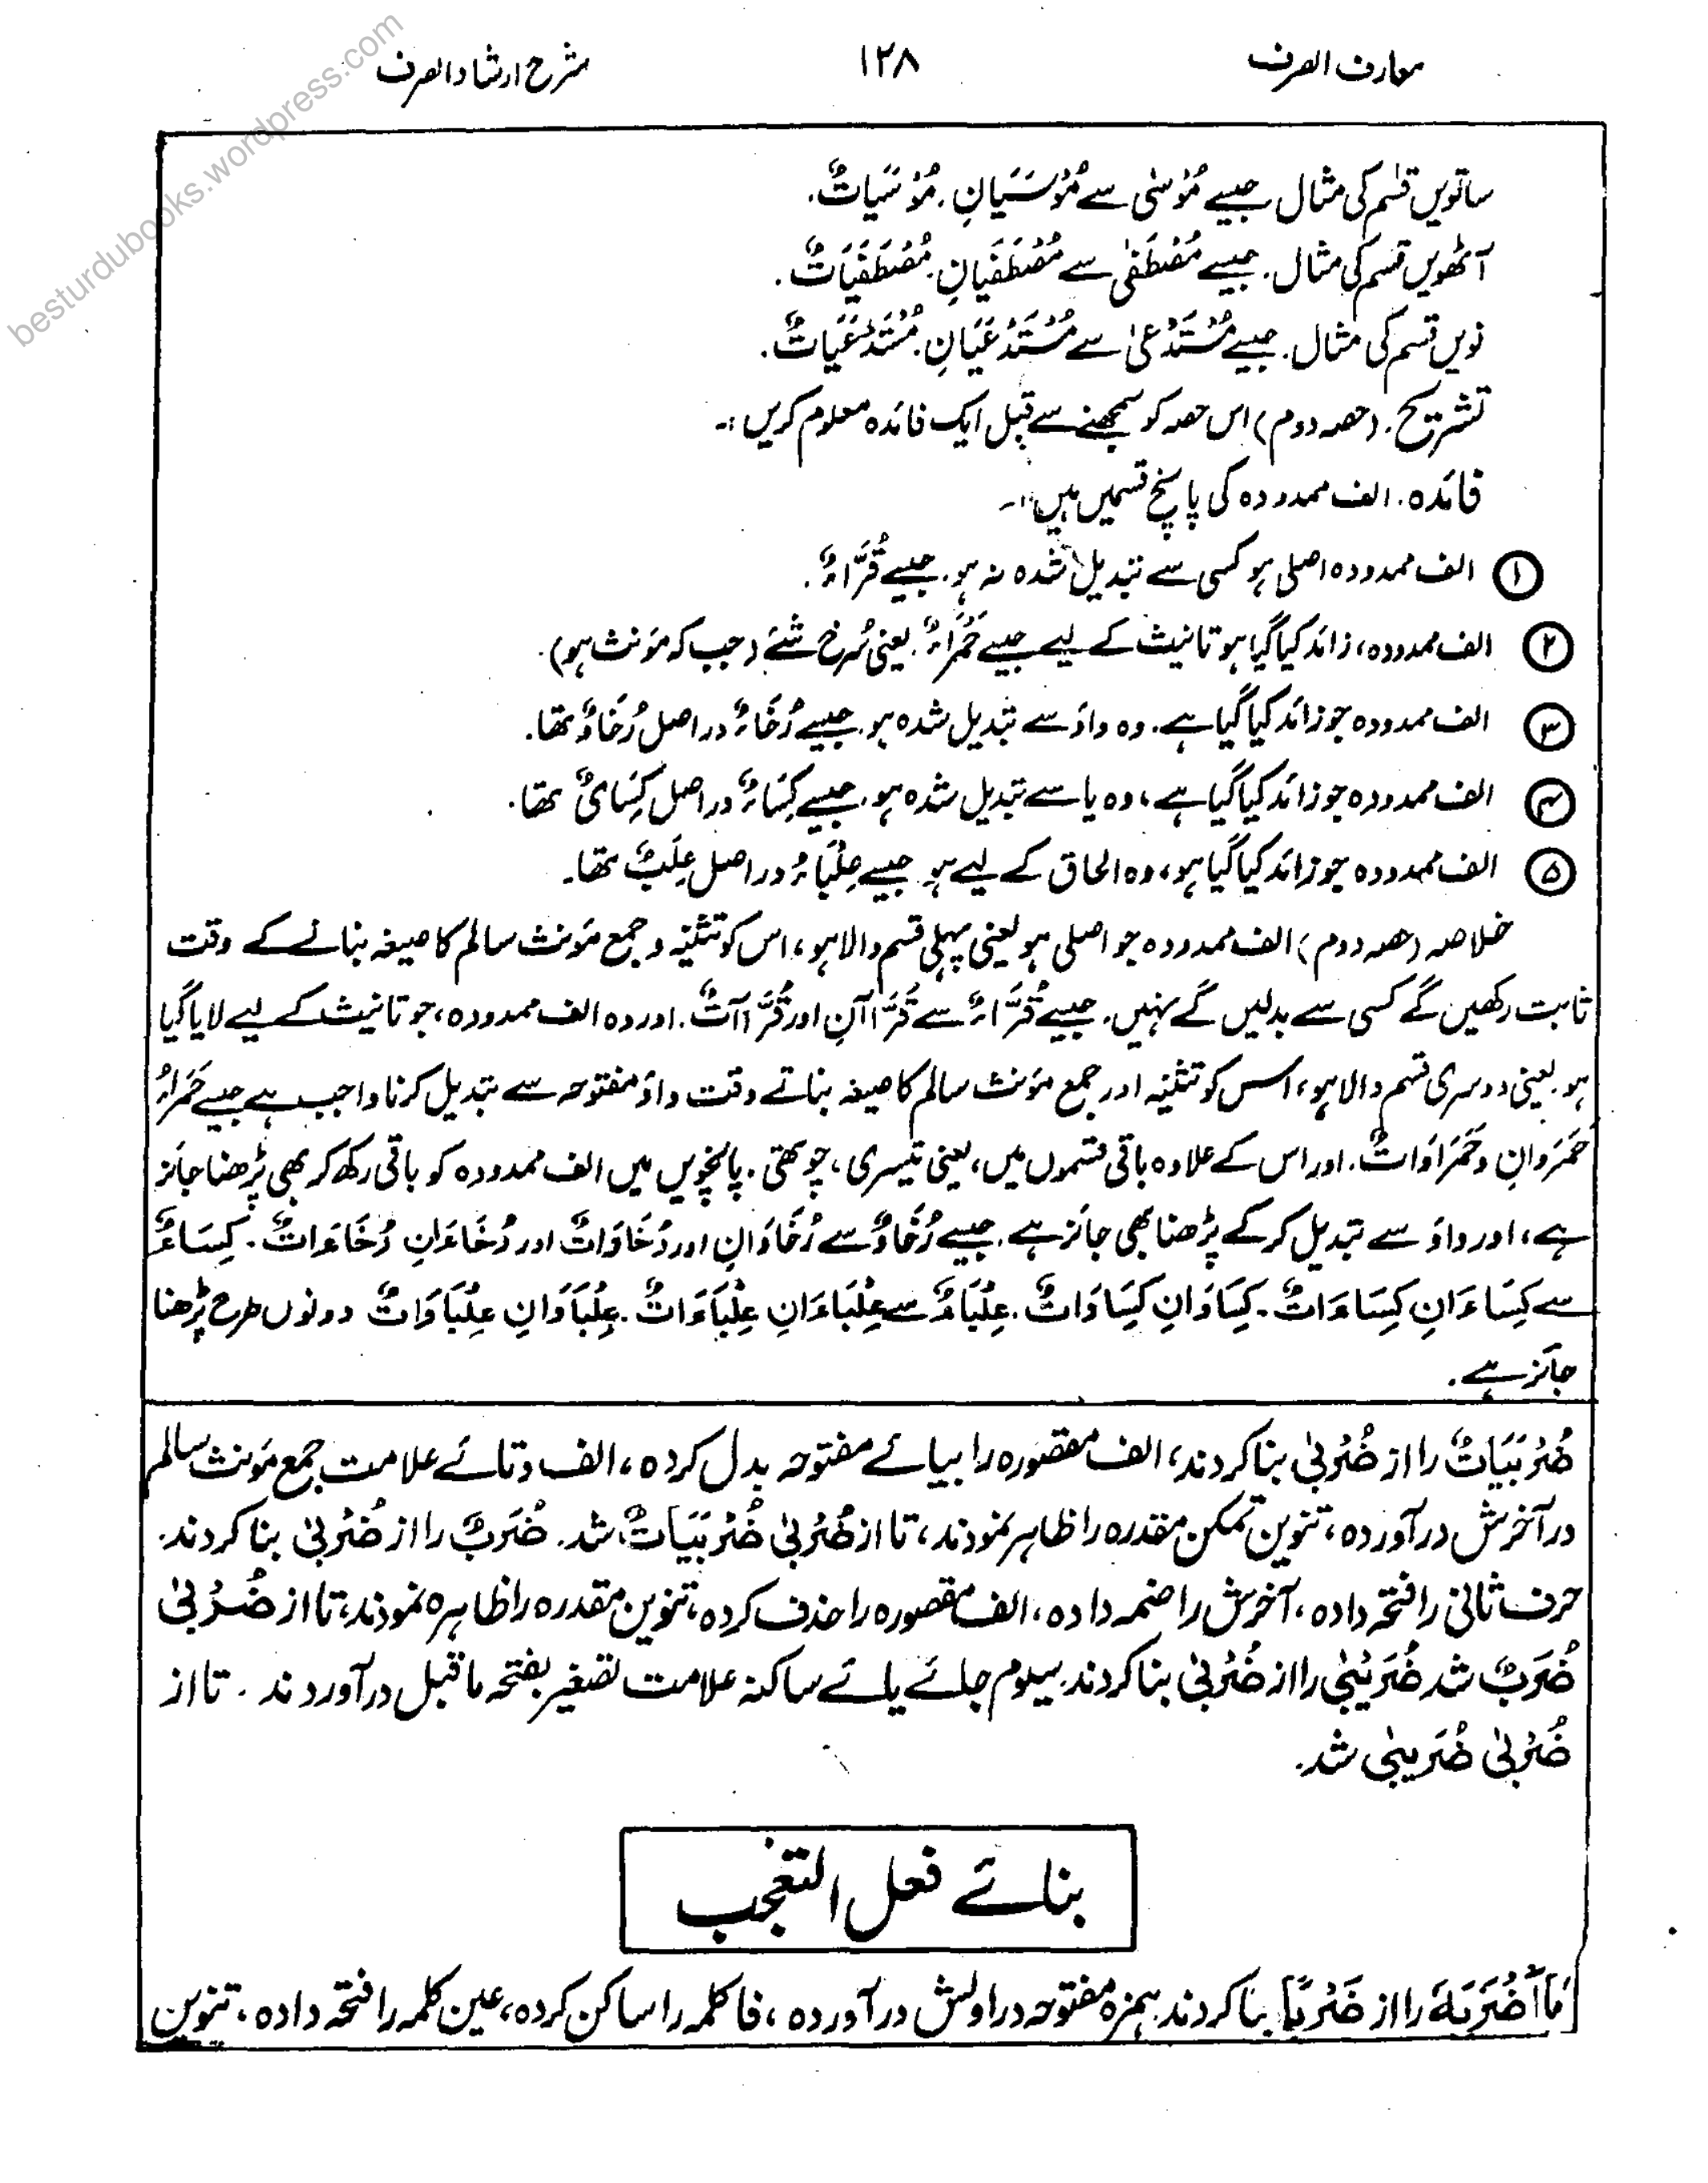 معارف الصرف
۱۲۸
شرح ارشاد الصرف
besturdubooks.wordpress.com
ساتویں قسم کی مثال جیسے مُوْسٰی سے مُوْسَیَانِ. مُوْسَیَاتٌ.
آٹھویں قسم کی مثال. جیسے مُصْطَفٰی سے مُصْطَفَیَانِ. مُصْطَفَیَاتٌ.
نویں قسم کی مثال. جیسے مُسْتَدْعیٰ سے مُسْتَدْعَیَانِ. مُسْتَدْعَیَاتٌ.
تشریح. (حصہ دوم) اس حصہ کو سمجھنے سے قبل ایک فائدہ معلوم کریں :۔
فائدہ. الف ممدودہ کی پانچ قسمیں ہیں :۔
① الف ممدودہ اصلی ہو کسی سے تبدیل شدہ نہ ہو. جیسے قُرَّاءٌ.
② الف ممدودہ، زائد کیا گیا ہو تانیث کے لیے جیسے حَمْرَاءُ. یعنی سُرخ شئے (جب کہ مؤنث ہو).
③ الف ممدودہ جو زائد کیا گیا ہے. وہ واؤ سے تبدیل شدہ ہو. جیسے رُخَاءٌ دراصل رُخَاوٌ تھا.
④ الف ممدودہ جو زائد کیا گیا ہے، وہ یا سے تبدیل شدہ ہو. جیسے کِسَاءٌ دراصل کِسَایٌ تھا.
⑤ الف ممدودہ جو زائد کیا گیا ہو، وہ الحاق کے لیے ہو جیسے عِلْبَاءُ دراصل عِلَبٌ تھا۔
خلاصہ (حصہ دوم) الف ممدودہ جو اصلی ہو یعنی پہلی قسم والا ہو، اس کو تثنیہ و جمع مؤنث سالم کا صیغہ بنانے کے وقت
ثابت رکھیں گے کسی سے بدلیں گے نہیں. جیسے قُرَّاءٌ سے قُرَّاآنِ اور قُرَّاآتٌ. اور وہ الف ممدودہ، جو تانیث کے لیے لایا گیا
ہو. یعنی دوسری قسم والا ہو، اس کو تثنیہ اور جمع مؤنث سالم کا صیغہ بناتے وقت واؤ مفتوحہ سے تبدیل کرنا واجب ہے جیسے حَمَرَاءُ
حَمَرَوانِ وحَمَرَاوَاتٌ. اور اس کے علاوہ باقی قسموں میں، یعنی تیسری، چوتھی. پانچویں میں الف ممدودہ کو باقی رکھ کر بھی پڑھنا جائز
ہے، اور واؤ سے تبدیل کر کے پڑھنا بھی جائز ہے. جیسے رُخَاوٌ سے رُخَاوَانِ اور رُخَاوَاتٌ اور رُخَاءَانِ رُخَاءَاتٌ. کِسَاءٌ
سے کِسَاءَانِ کِسَاءَاتٌ. کِسَاوَانِ کِسَاوَاتٌ. عِلْبَاءٌ سے عِلْبَاءَانِ عِلْبَاءَاتٌ. عِلْبَاوَانِ عِلْبَاوَاتٌ دونوں طرح پڑھنا
جائز ہے.
ضُرْبَیَاتٌ را از ضُرْبیٰ بنا کردند، الف مقصورہ را بیائے مفتوحہ بدل کردہ، الف وتائے علامت جمع مؤنث سالم
در آخرش در آوردہ، تنوین تمکن مقدرہ را ظاہر نمودند، تا از ضُرْبیٰ ضُرْبَیَاتٌ شد. ضُرَبٌ را از ضُرْبیٰ بنا کردند.
حرف ثانی را فتحہ دادہ، آخرش را ضمہ دادہ، الف مقصورہ را حذف کردہ، تنوین مقدرہ را ظاہرہ نمودند، تا از ضُرْبیٰ
ضُرَبٌ شد ضُرَیْبیٰ را از ضُرْبیٰ بنا کردند. سیوم جائے یائے ساکنہ علامت تصغیر بفتحہ ماقبل در آوردند. تا از
ضُرْبیٰ ضُرَیبیٰ شد.
بنائے فعل التعجب
مَا اَضْرَبَهٗ را از ضَرْبًا بنا کردند ہمزہ مفتوحہ در اولش در آوردہ، فا کلمہ را ساکن کردہ، عین کلمہ را فتحہ دادہ، تنوین